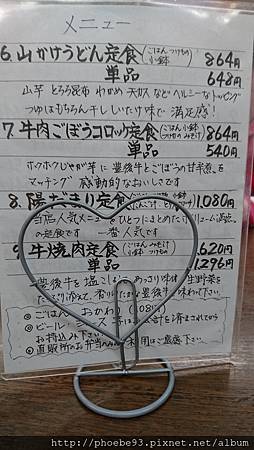 メニュー
6.山かけうどん定食(ごはん つけもの 小鉢) 864円
単品 648円
山芋 とろろ昆布 わかめ 天カス などヘルシーなトッピング
つゆはもちろん干ししいたけ味で 満足感!
7.牛肉ごぼうコロッケ定食 864円
単品 540円
ホクホクじゃが芋に 豊後牛とごぼうの甘辛煮を
マッチング 感動的なおいしさです
8. 定食 1,080円
当店人気メニュー ひとつにまとめた
の定食です 一番人気です
牛焼肉定食(ごはん みそ汁 小鉢 つけもの) 1,620円
単品 1,296円
豊後牛を塩こしょう あっさり味 生野菜を
味わって下さい
ごはん おかわり (108円)
ビール ジュース
お持込み下さい
直販所のお弁当 ご遠慮下さい
http://phoebe93.pixnet.net/album